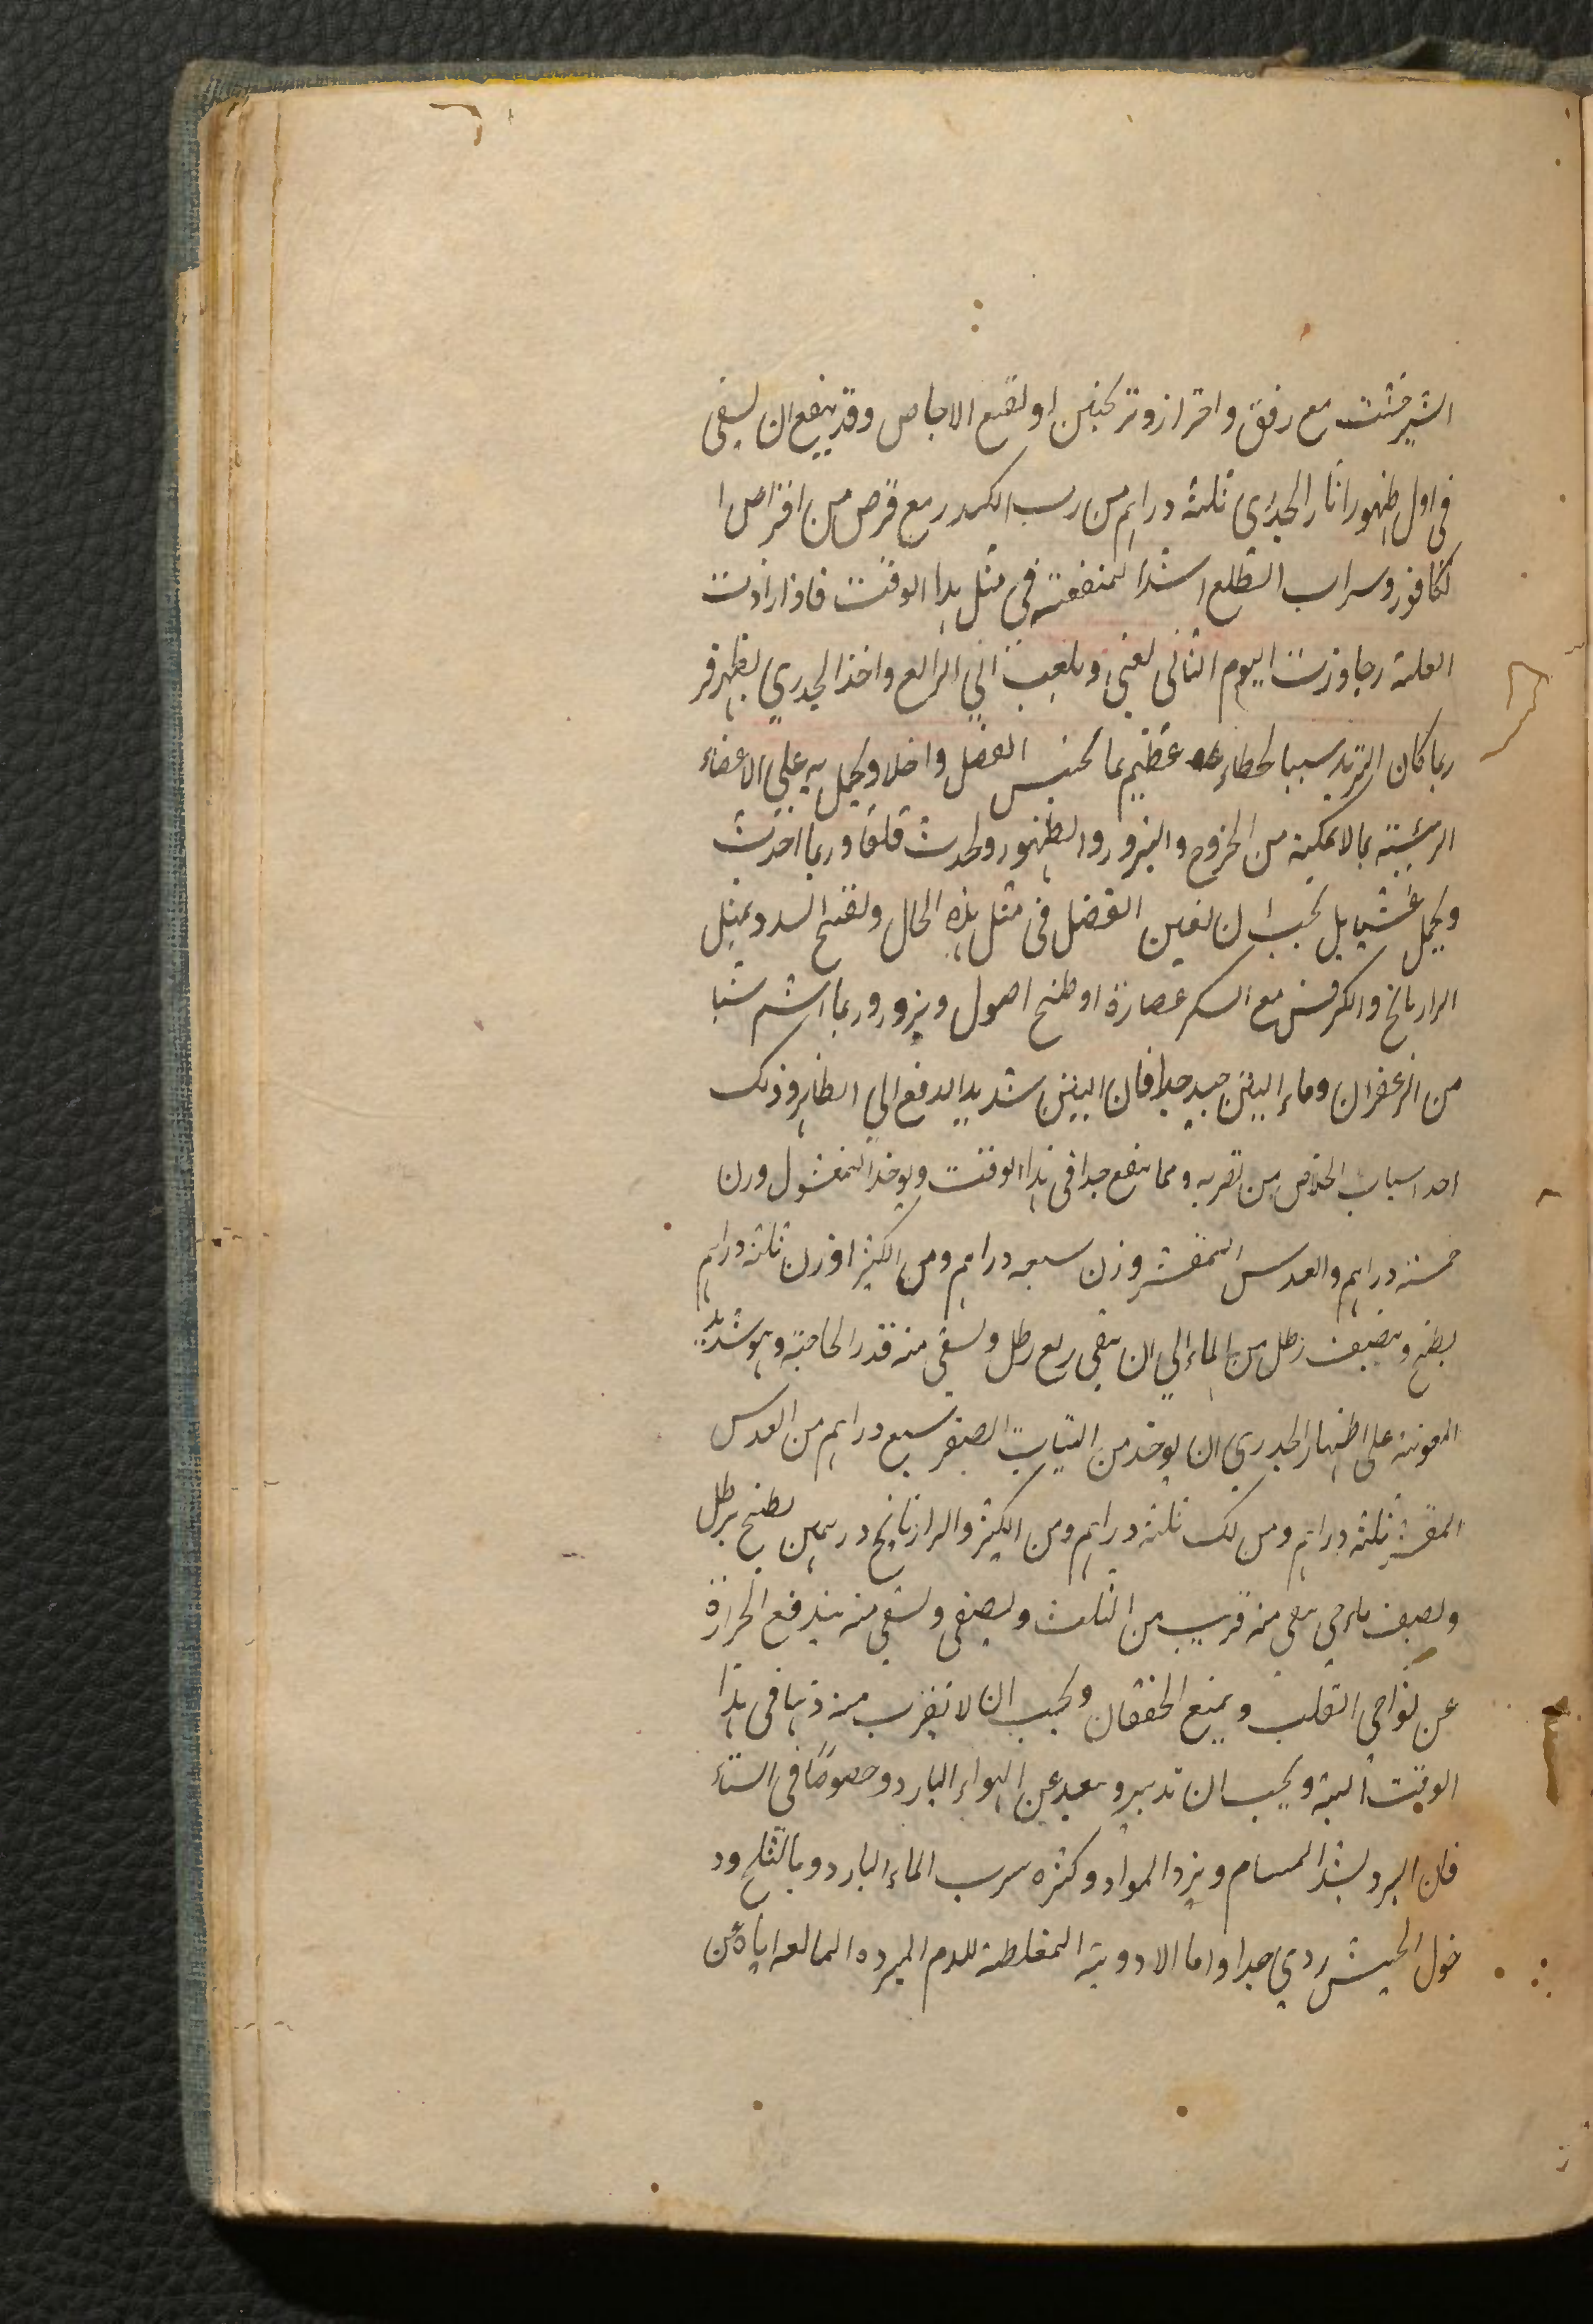 الشيرخشت مع رفق واحتراز وترنجبين او نقيع الاجاص وقد ينفع ان يسقى
فى اول ظهور اثار الجدرى ثلثة دراهم من رب الكدر مع قرص من اقراص ا
لكافور وسراب الطلع اشد المنفعته فى مثل هذا الوقت فاذا زادت
العلة وجاوزت اليوم الثانى لغنى وبلغت الى الرابع واخذ الجدري يظهر فر
ربما كان التبريد سببا لخطاء عظيم بما يحبس الفضل داخلا ويحمل به على الاعضاء
الرئيسة بما لا يمكنه من الخروج والبروز والظهور ويحدث قلقا وربما احدث
ويحمل غشيا بل يجب ان يعين الفضل فى مثل هذه الحال ويفتح السدد بمثل
الرازيانج والكرفس مع السكر عصارة او طبخ اصول وبزور وربما اشم شيا
من الزعفران وماء التين جيد جدا فان التين شديد الدفع الى الظاهر وذلك
احد اسباب الخلاص من ضربه ومما ينفع جدا فى هذا الوقت ويوخذ المغسول وزن
خمسة دراهم والعدس المقشر وزن سبعه دراهم ومن الكثيرا وزن ثلثة دراهم
يطبخ وبنصف رطل من الماء الي ان يبقى ربع رطل ويسقى منه قدر الحاجة وهو شديد
المعونة على اظهار الجدرى ان يوخذ من التين الصفر سبع دراهم من العدس
المقشر ثلثة دراهم ومن لك ثلثة دراهم ومن الكثيرا والرازيانج درهمين يطبخ برطل
ونصف ماء حى يبقى منه قريب من الثلث ويصفى ويسقى منه يندفع الحرارة
عن نواحى القلب ويمنع الخفقان ويجب ان لا يقرب منه دهنا فى هذا
الوقت البتة ويجب ان تدبيرو يبعد عن الهواء البارد وخصوصًا فى الستاء
فان البرد يشد المسام ويرد المواد وكثره سرب الماء البارد وبالثلج ود
خول الخيش ردي جدا واما الادوية المغلظة للدم المبرده المانعه اياه عن